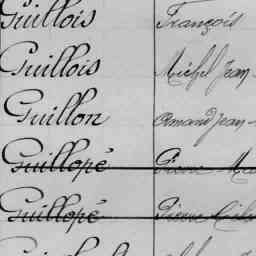 Guillois François
Guillois Michel Jean
Guillon Armand Jean
Guillopé Pierre
Guillopé Pierre